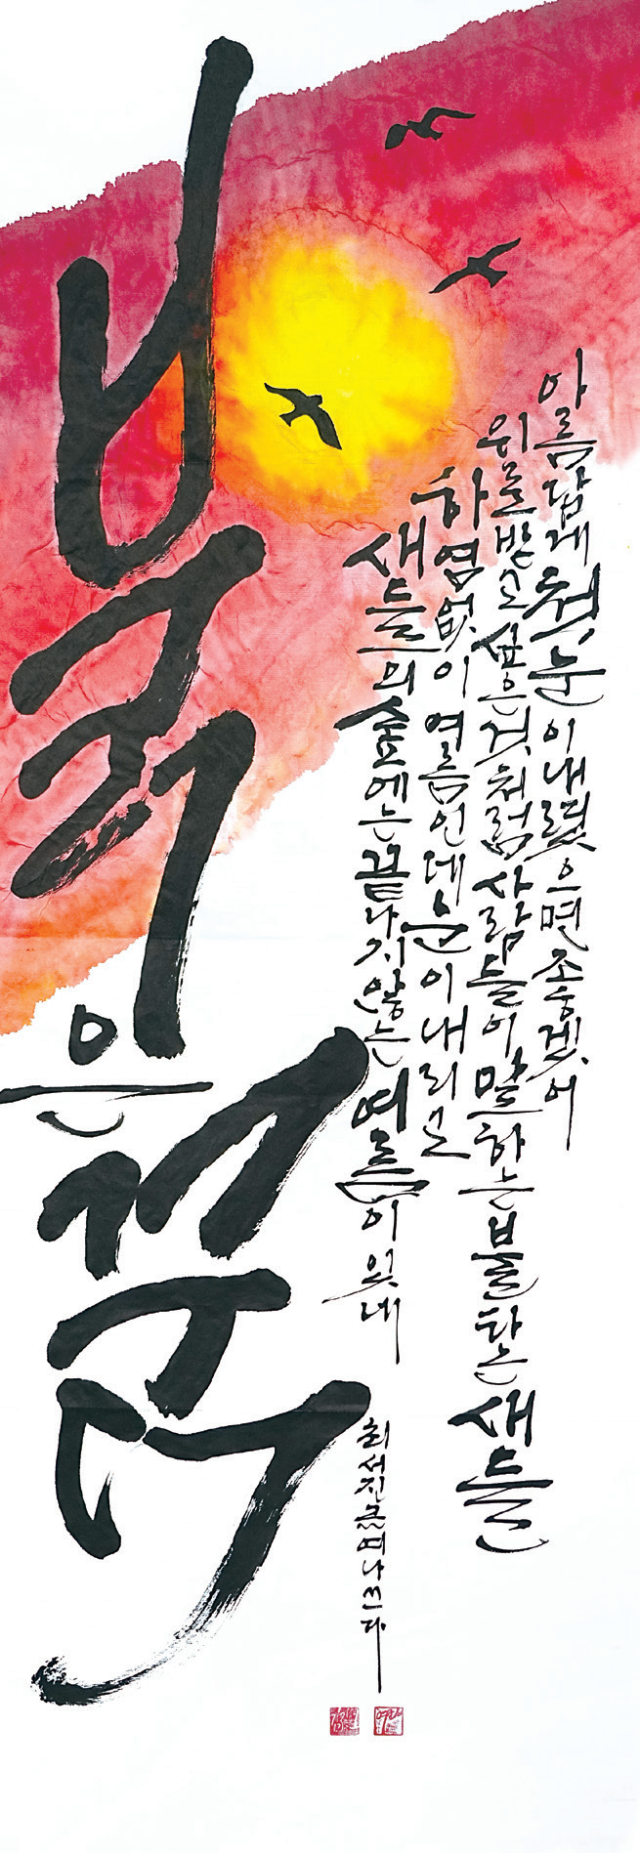 아름답게 첫눈이 내렸으면 좋겠어
위로받고 싶은 것처럼 사람들이 말하는 불타는 새들
하염없이 여름인데 눈이 내리고
새들의 숲에는 끝나지 않는 여름이 있네
최서진 글 쓰다